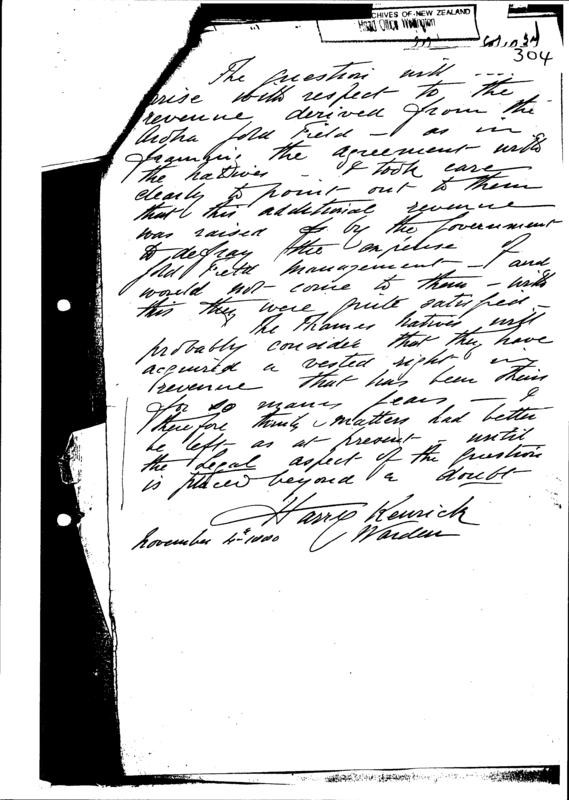 CHIVES OF NEW ZEALAND
Head Office Wellington
304
The question will
arise with respect to the
revenue derived from the
Aroha Gold Field – as in
framing the agreement with
the natives – I took care
clearly to point out to them
that this additional revenue
was raised by the Government
to defray the expense of
Gold Field management – and
would not come to them – with
this they were quite satisfied –
The Thames natives will
probably consider that they have
acquired a vested right in
revenue that has been theirs
for so many years – I
therefore think matters had better
be left as at present – until
the legal aspect of the question
is placed beyond a doubt
Harry Kenrick
November 4th 1880 Warden